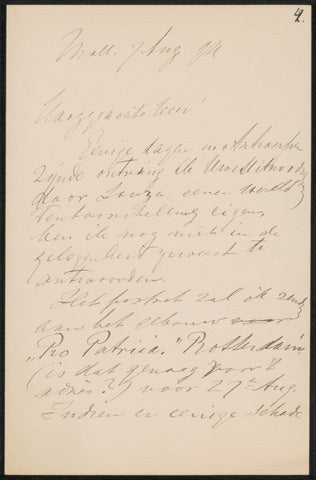 4.
Moll. 7 Aug. 94
Hooggeachte Heer!
Eenige dagen in Antwerpen
zijnde ontving ik
door eener wereld
tentoonstelling eigen,
ben ik nog niet in de
gelegenheid geweest te
antwoorden.
Het portret zal ik zenden
aan het gebouw
„Pro Patria." Rotterdam
(is dat genoeg voor 't
adres?) voor 27n Aug.
Indien er eenige schade